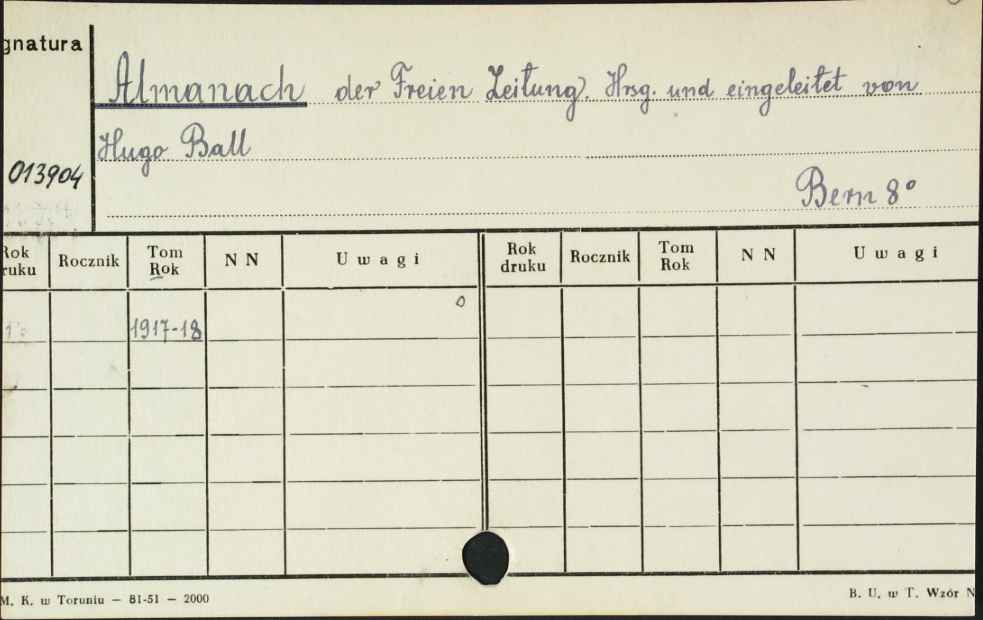 gnatura
Almanach der Freien Zeitung. Hrsg. und eingeleitet von
Hugo Ball
013904
Bern 8°
Rok druku Rocznik Tom Rok N N Uwagi Rok druku Rocznik Tom Rok N N Uwagi
1917-18
M. K. w Toruniu — 81-51 — 2000
B. U. w T. Wzór N